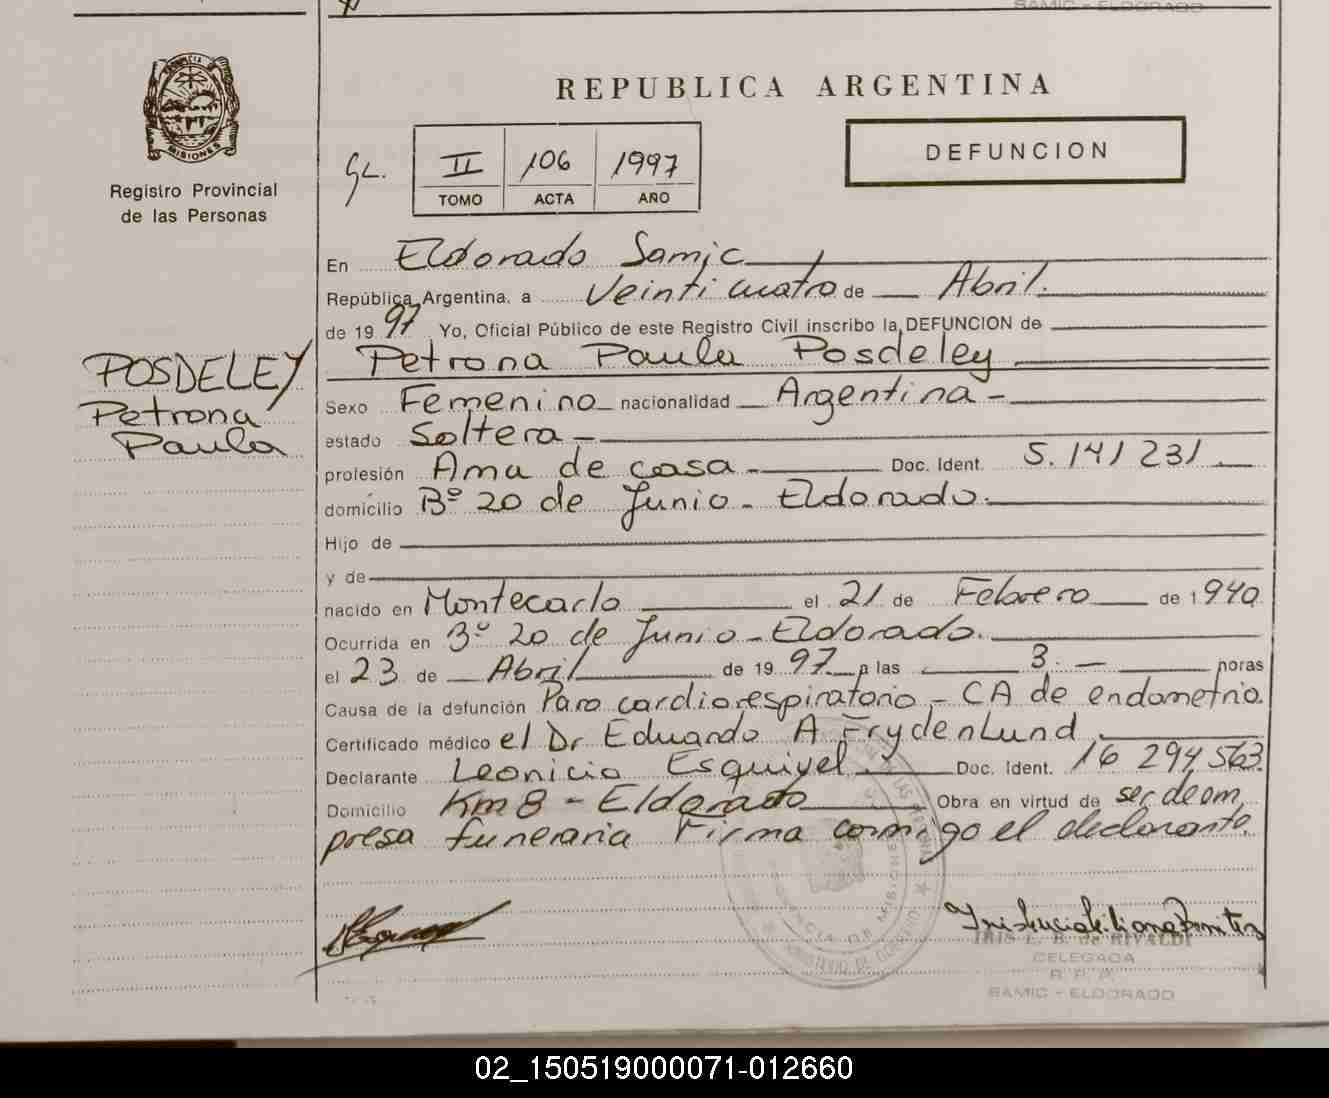 SAMIC - ELDORADO
PROVINCIA DE
MISIONES
Registro Provincial
de las Personas
REPUBLICA ARGENTINA
II 106 1997
TOMO ACTA AÑO
DEFUNCION
En Eldorado Samic
República Argentina, a Veinticuatro de Abril.
de 1997 Yo, Oficial Público de este Registro Civil inscribo la DEFUNCION de
Petrona Paula Posdeley
POSDELEY
Petrona
Paula
Sexo Femenino nacionalidad Argentina -
estado Soltera -
profesión Ama de casa - Doc. Ident. 5.141231
domicilio Bº 20 de Junio - Eldorado.
Hijo de
y de
nacido en Montecarlo el 21 de Febrero de 1940
Ocurrida en Bº 20 de Junio - Eldorado.
el 23 de Abril de 1997 a las 3. - horas
Causa de la defunción Paro cardiorespiratorio - CA de endometrio.
Certificado médico el Dr Eduardo A Frydenlund
Declarante Leonicio Esquivel Doc. Ident. 16 294 563.
Domicilio Km 8 - Eldorado Obra en virtud de ser de em
presa funeraria Firma conmigo el declarante.
IRIS L. B. de RIVALDI
DELEGADA
R. P. P.
SAMIC - ELDORADO
02_150519000071-012660